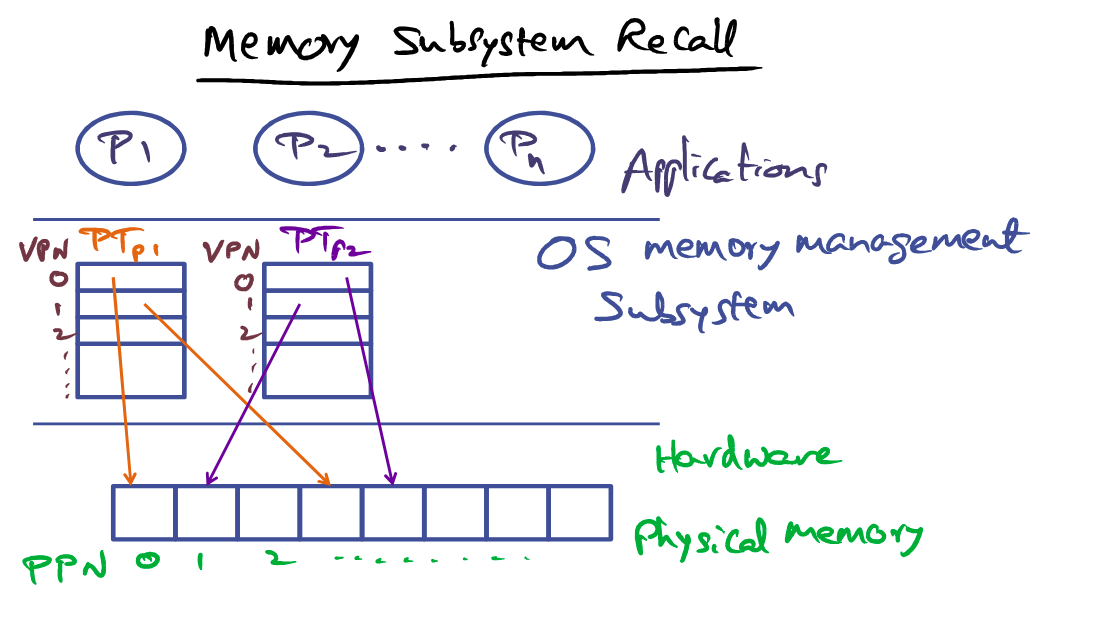 Memory Subsystem Recall
P1 P2 .... Pn
Applications
VPN PTP1 VPN PTP2
OS memory management
Subsystem
0 0
1 1
2 2
Hardware
Physical Memory
PPN 0 1 2 .........